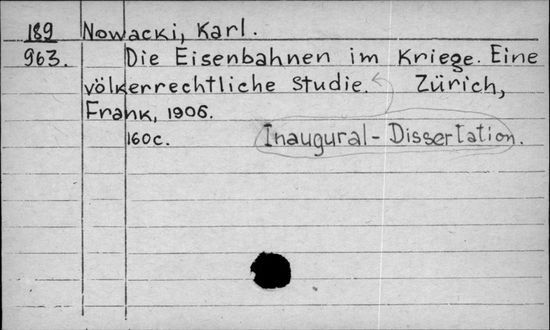 189 Nowacki, Karl.
963. Die Eisenbahnen im Kriege. Eine
völkerrechtliche Studie. Zürich,
Frank, 1906.
160c. Inaugural-Dissertation.